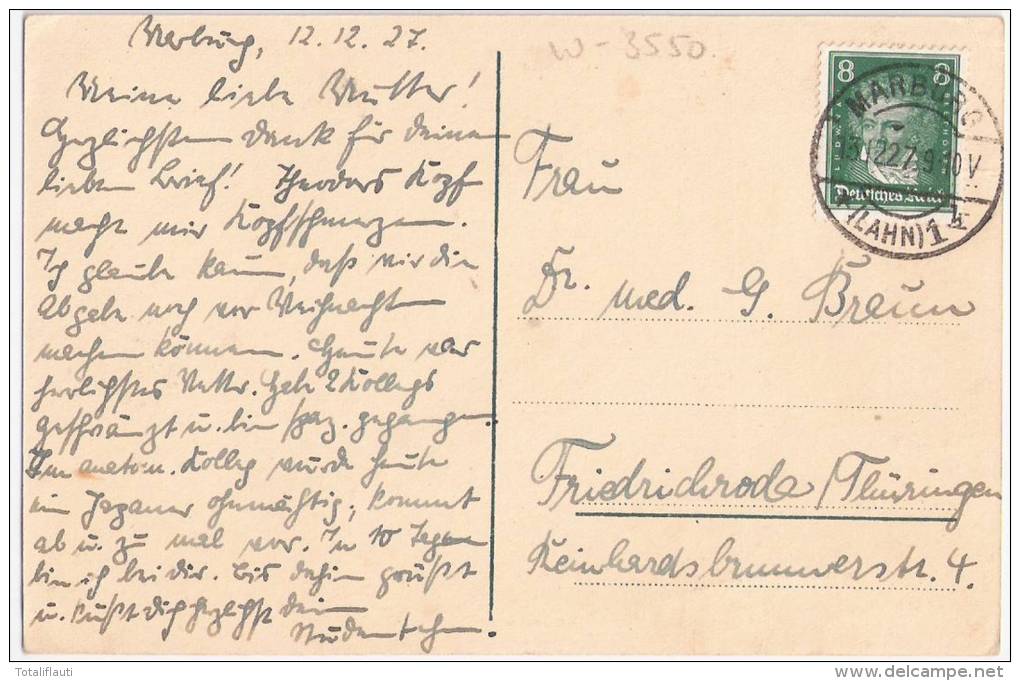 Marburg, 12.12.27.
Meine liebe Mutter!
Herzlichsten Dank für deinen
lieben Brief! Theodors Kopf
macht mir Kopfschmerzen.
Ich glaube kaum, daß wir die
abgabe noch vor Weihnachten
machen können. Heute war
herrlichstes Wetter. Habe 2 Kollegs
geschwänzt u. bin spaz. gegangen.
Im anatom. Kolleg wurde heute
ein Japaner ohnmächtig, kommt
ab u. zu mal vor. In 10 Tagen
bin ich bei dir. Bis dahin grüßt
u. küßt dich herzlichst dein
W-3550.
8 8
Deutsches Reich
MARBURG
13.12.27.9-10V
(LAHN) 1
Frau
Dr. med. G. Braun
Friedrichroda/Thüringen
Reinhardsbrunnerstr. 4.
Totaliflauti
delcampe.net